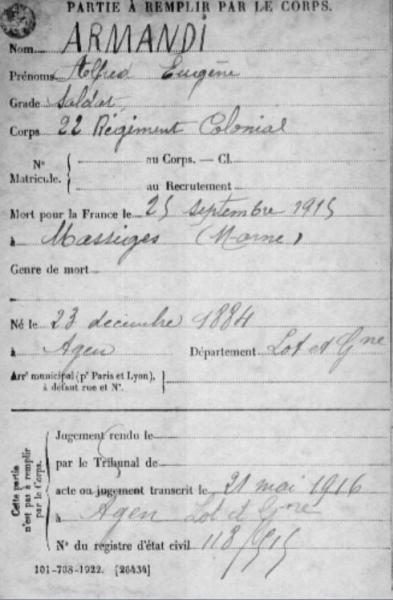 PARTIE À REMPLIR PAR LE CORPS.
Nom ARMANDI
Prénoms Alfred Eugène
Grade Soldat
Corps 22 Régiment Colonial
N° Matricule. { au Corps. — Cl.
au Recrutement
Mort pour la France le 25 septembre 1915
à Massiges (Marne)
Genre de mort
Né le 23 décembre 1884
à Agen Département Lot et Gne
Arrt municipal (pr Paris et Lyon), à défaut rue et N°. {
Cette partie n'est pas à remplir par le Corps.
Jugement rendu le
par le Tribunal de
acte ou jugement transcrit le 21 mai 1916
à Agen Lot et Gne
N° du registre d'état civil 118/915
101-708-1922. [26434]